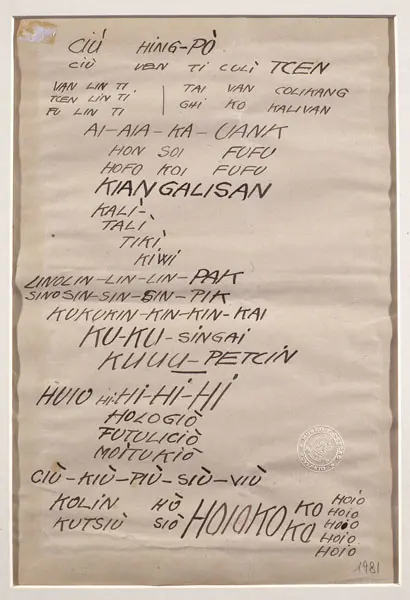 CIÙ HING-PÒ
CIÙ VEN TI CULI TCEN
VAN LIN TI TAI VAN COLIKANG
TCEN LIN TI GHI KO KALIVAN
FU LIN TI
AI-AIA-KA-UANK
HON SOI FUFU
HOFO KOI FUFU
KIANGALISAN
KALÌ-
TALÌ
TIKÌ
KIWI
LINOLIN-LIN-LIN-PAK
SINOSIN-SIN-SIN-PIK
KUKUKIN-KIN-KIN-KAI
KU-KU-SINGAI
KUUU-PETCIN
HUIO HI-HI-HI-HI
HOLOGIÒ
FUTULICIÒ
MOITUKIÒ
CIÙ-KIÙ-PIÙ-SIÙ-VIÙ
KOLIN HÒ HOIOKO KO HOIO
KUTSIÙ SIÒ KO HOIO
HOIO
HOIO
HOIO
1981